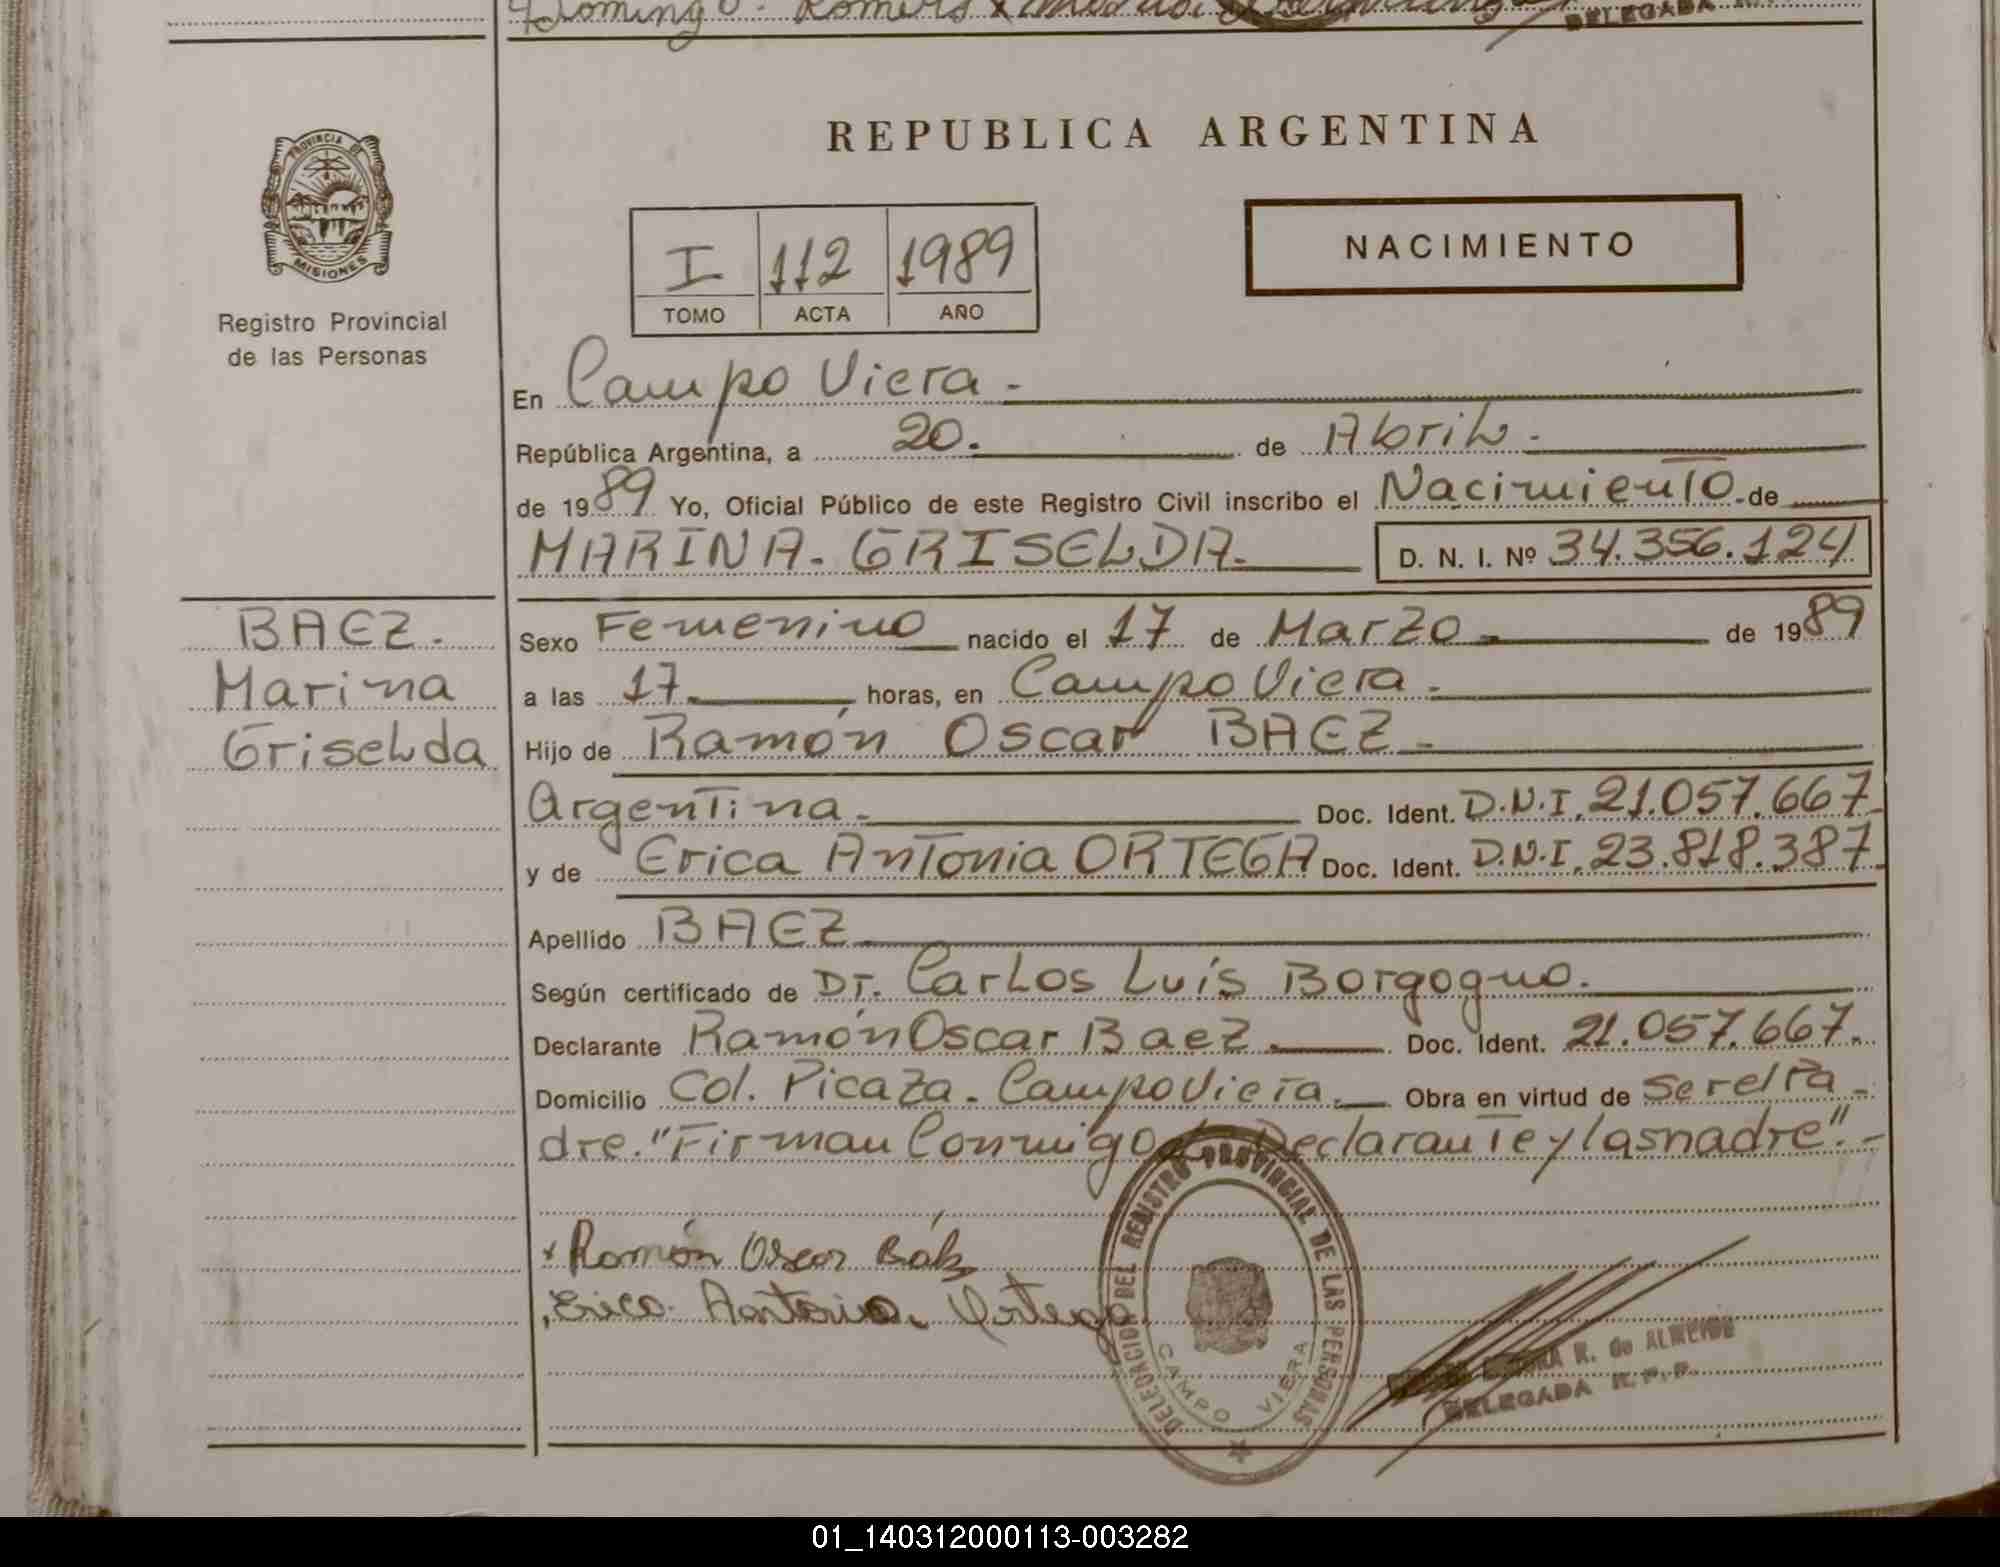 Domingo. Romero x
DELEGADA
PROVINCIA DE
MISIONES
Registro Provincial
de las Personas
REPUBLICA ARGENTINA
I 112 1989
TOMO ACTA AÑO
NACIMIENTO
En Campo Viera.
República Argentina, a 20. de Abril.
de 1989 Yo, Oficial Público de este Registro Civil inscribo el Nacimiento. de
MARINA. GRISELDA. D. N. I. Nº 34.356.124
BAEZ.
Marina
Griselda
Sexo Femenino nacido el 17 de Marzo. de 1989
a las 17. horas, en Campo Viera.
Hijo de Ramón Oscar BAEZ.
Argentina. Doc. Ident. D.N.I. 21.057.667.
y de Erica Antonia ORTEGA Doc. Ident. D.N.I. 23.818.387.
Apellido BAEZ
Según certificado de Dr. Carlos Luís Borgogno.
Declarante Ramón Oscar Baez. Doc. Ident. 21.057.667.
Domicilio Col. Picaza. Campo Viera. Obra en virtud de Ser el Pa
dre. "Firman Conmigo el Declarante y la madre".
x Ramón Oscar Báez
Erica. Antonia. Ortega
DELEGACIO DEL REGISTRO PROVINCIAL DE LAS PERSONAS
CAMPO VIERA
R. de ALMEIDA
DELEGADA R.P.P.
01_140312000113-003282